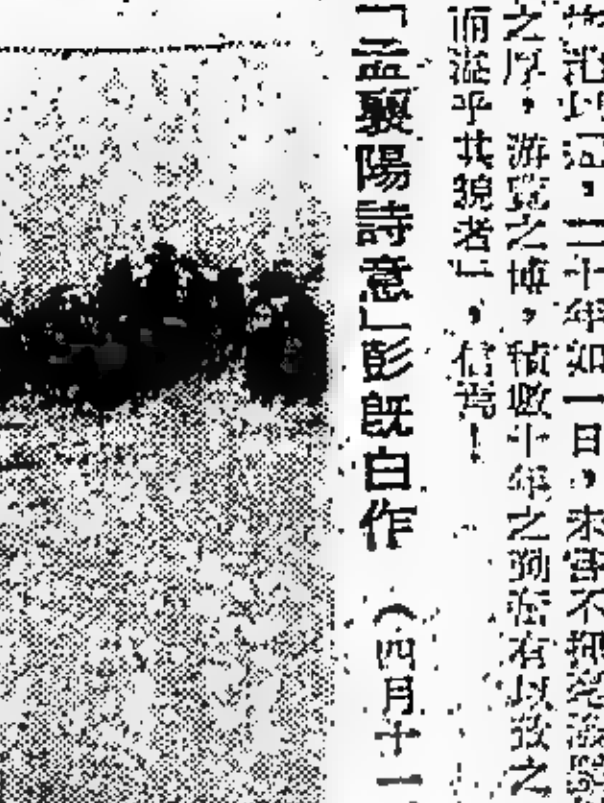 年如一日,未嘗不
之厚,游覽之博,積數十年之
乎其貌者」,信焉!
「孟襄陽詩意」彭旣白作 (四月十一